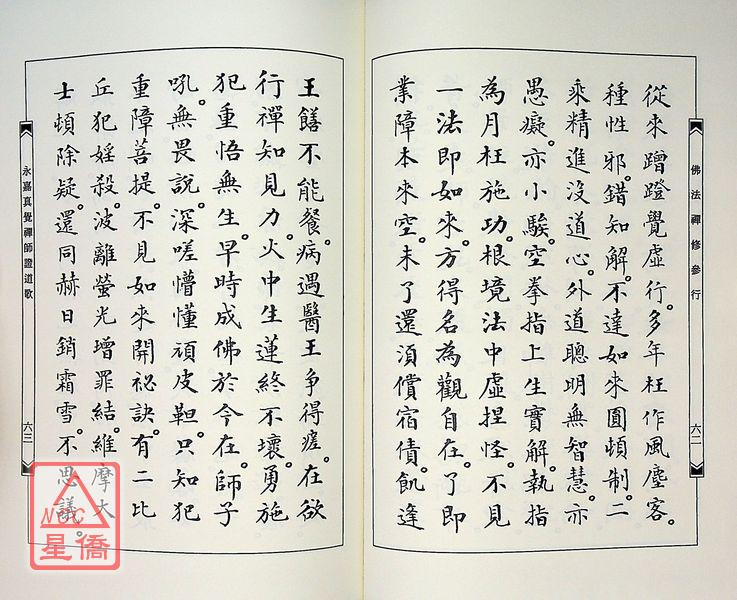 佛法禪修參行
六二
從來蹭蹬覺虛行。多年枉作風塵客。
種性邪。錯知解。不達如來圓頓制。二
乘精進沒道心。外道聰明無智慧。亦
愚癡。亦小騃。空拳指上生實解。執指
為月枉施功。根境法中虛捏怪。不見
一法即如來。方得名為觀自在。了即
業障本來空。未了還須償宿債。飢逢
王饍不能餐。病遇醫王爭得瘥。在欲
行禪知見力。火中生蓮終不壞。勇施
犯重悟無生。早時成佛於今在。師子
吼。無畏說。深嗟懵懂頑皮靼。只知犯
重障菩提。不見如來開祕訣。有二比
丘犯婬殺。波離螢光增罪結。維摩大
士頓除疑。還同赫日銷霜雪。不思議。
永嘉真覺禪師證道歌
六三
NCC
星僑